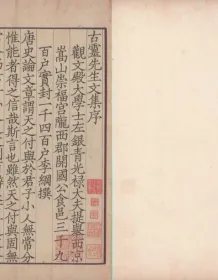 古靈先生文集序
觀文殿大學士左銀青光祿大夫提舉西京
嵩山崇福宮隴西郡開國公食邑三千九
百戶實封一千四百戶李綱撰
唐史論文章謂天之付與於君子小人無常分
惟能者得之信哉斯言也雖然天之付與固無